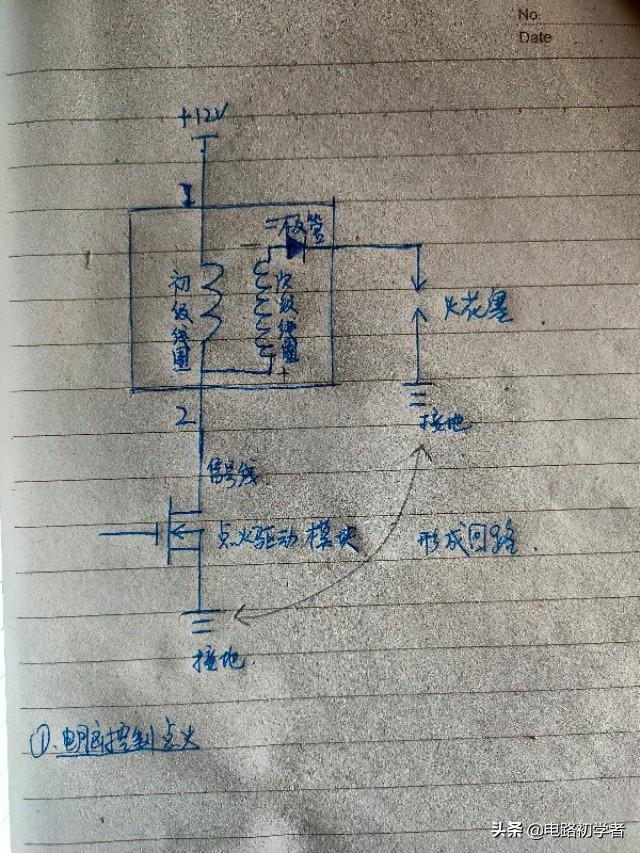 No.
Date
+12V
1
二极管
-
初级线圈
次级线圈
+
火花塞
2
接地
信号线
点火驱动模块
形成回路.
接地.
①.电脑控制点火
头条 @电路初学者